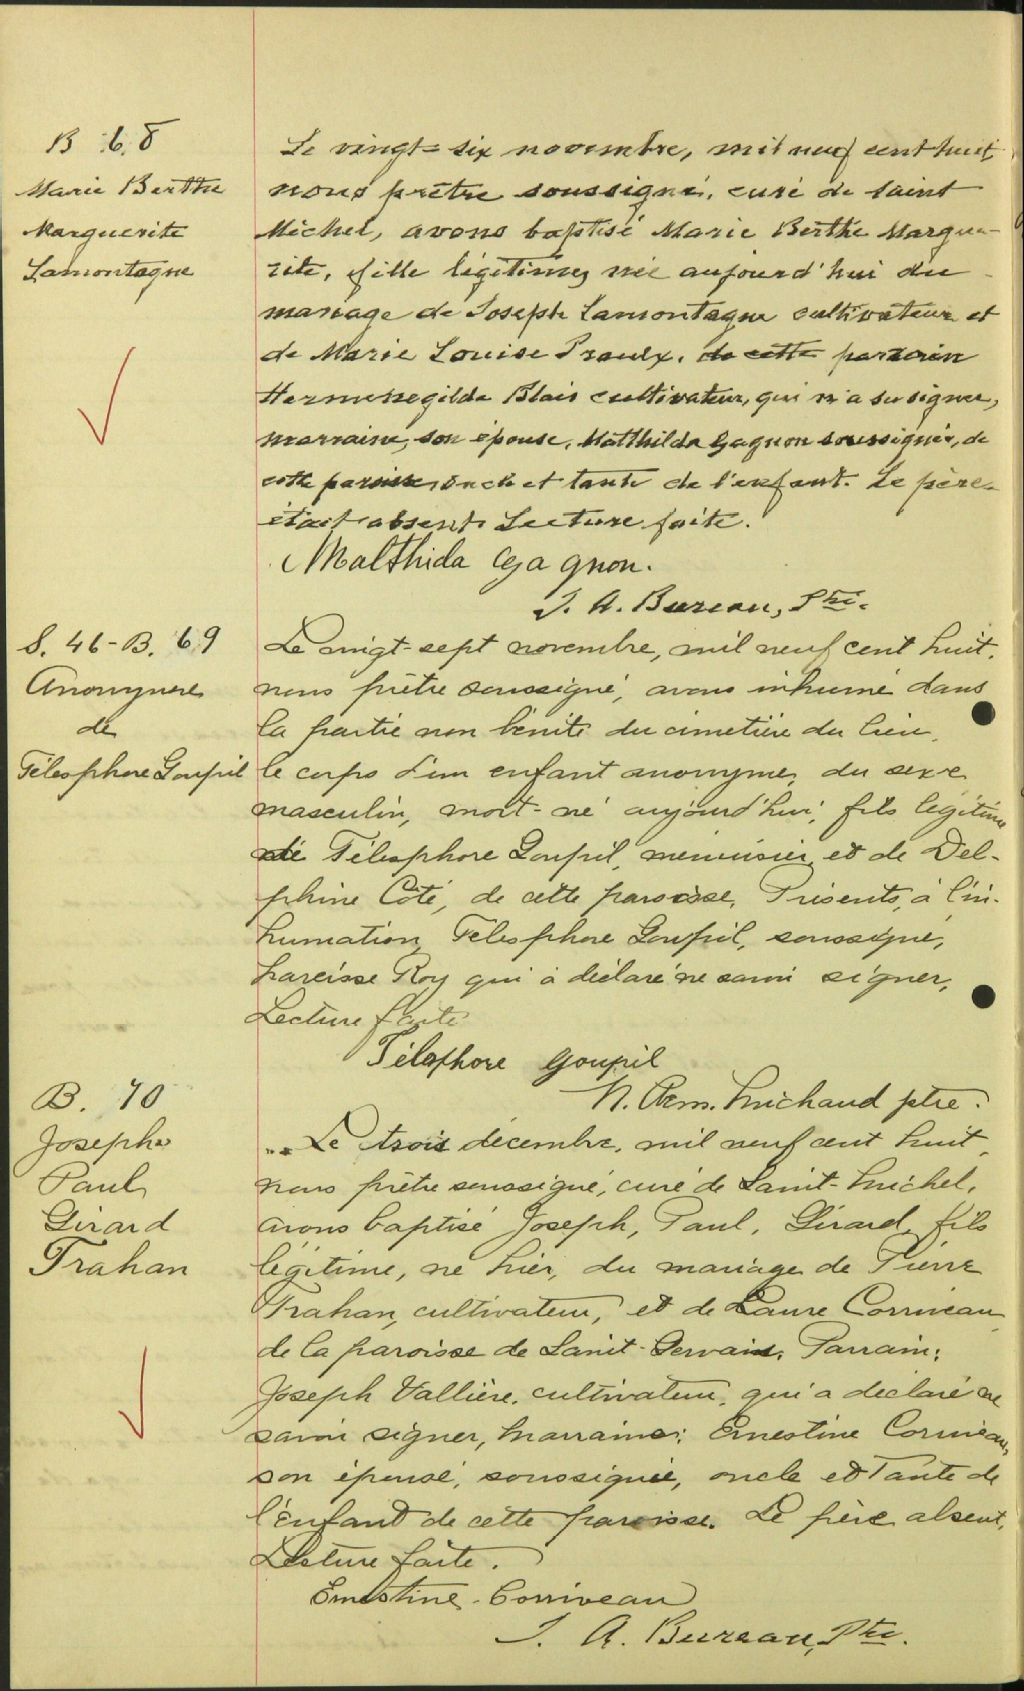 B 68
Marie Berthe
Marguerite
Lamontagne
Le vingt-six novembre, mil neuf cent huit,
nous prêtre soussigné, curé de saint
Michel, avons baptisé Marie Berthe Margue-
rite, fille légitime, née aujourd'hui du
mariage de Joseph Lamontagne cultivateur et
de Marie Louise Proulx. de cette parrain
Hermenegilde Blais cultivateur, qui n'a su signer,
marraine, son épouse, Matthilda Gagnon soussignée, de
cette paroisse, oncle et tante de l'enfant. Le père
était absent. Lecture faite.
Malthida Gagnon.
J. A. Bureau, Ptre.
S. 46-B. 69
Anonyme
de
Télesphore Goupil
Le vingt-sept novembre, mil neuf cent huit,
nous prêtre soussigné, avons inhumé dans
la partie non bénite du cimetière du lieu,
le corps d'un enfant anonyme, du sexe
masculin, mort-né aujourd'hui, fils légitime
de Télesphore Goupil, menuisier, et de Del-
phine Côté, de cette paroisse. Présents, à l'in-
humation, Télesphore Goupil, soussigné,
Narcisse Roy qui a déclaré ne savoir signer,
Lecture faite
Télesphore Goupil
N. Arm. Michaud ptre.
B. 70
Joseph
Paul
Girard
Trahan
Le trois décembre, mil neuf cent huit,
nous prêtre soussigné, curé de Saint-Michel,
avons baptisé Joseph, Paul, Girard, fils
légitime, né hier, du mariage de Pierre
Trahan, cultivateur, et de Laure Corriveau
de la paroisse de Saint-Gervais. Parrain:
Joseph Vallière, cultivateur, qui a déclaré ne
savoir signer, Marraine: Ernestine Corriveau,
son épouse, soussignée, oncle et Tante de
l'enfant de cette paroisse. Le père absent,
Lecture faite.
Ernestine Corriveau
J. A. Bureau, Ptre.